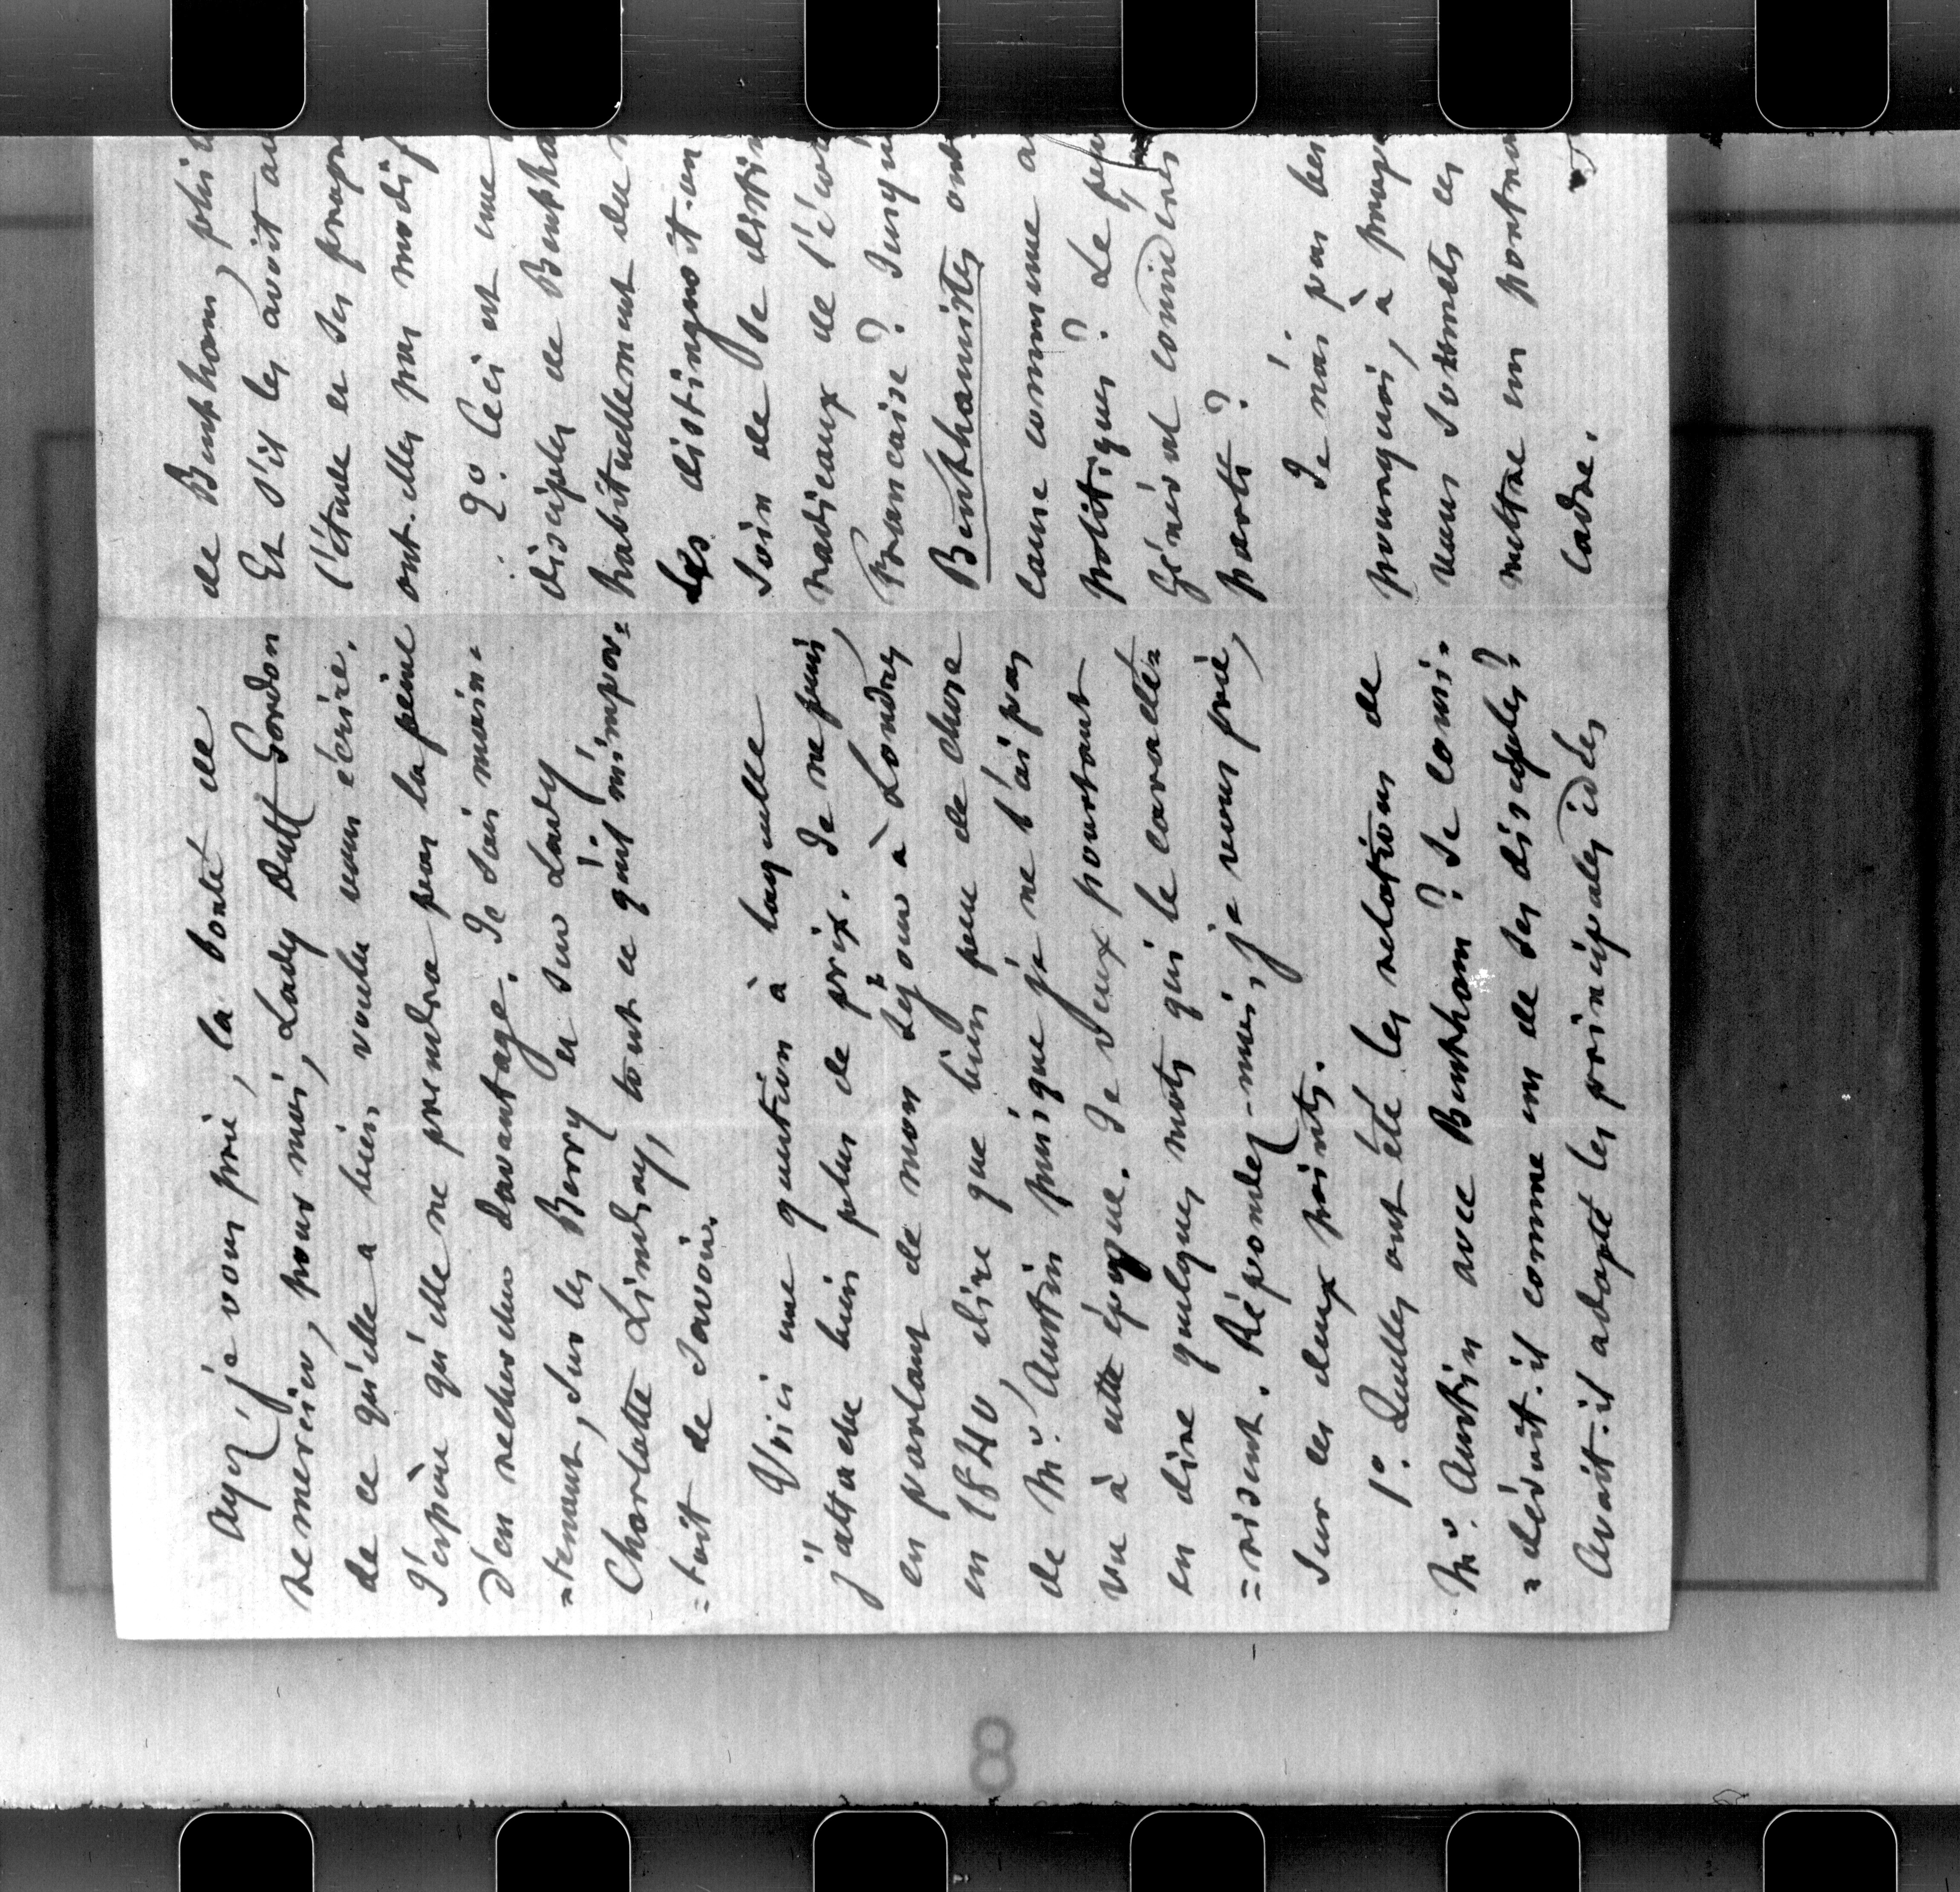 Ayez, je vous prie, la bonté de
remercier, pour moi, Lady Duff Gordon
de ce qu'elle a bien voulu vous écrire.
J'espère qu'elle ne prendra pas la peine
d'en rechercher davantage. Je sais main-
=tenant, sur les Berry et sur Lady
Charlotte Lindsay, tout ce qu'il m'impor=
=toit de savoir.
Voici une question à laquelle
j'attache bien plus de prix. Je ne puis,
en parlant de mon séjour à Londres
en 1840, dire que bien peu de chose
de Mr. Austin puisque je ne l'ai pas
vu à cette époque. Je veux pourtant
en dire quelques mots qui le caracté=
=risent. Répondez-moi, je vous prie,
sur ces deux points.
1o. Quelles ont été les relations de
Mr. Austin avec Bentham? Se consi-
=déroit-il comme un de ses disciples?
Avoit-il adopté les principales idées
de Bentham, phil
Et s'il les avoit au
l'étude et ses propr
ont-elles pas modif
2o. Ceci est une
disciples de Bentha
habituellement du n
Les distinguoit-on
soin de se distin
radicaux de l'éco
Francaise? Jusqu
Benthamistes ont
cause commune a
politiques? Le pu
général considéres
parti?
Je n'ai pas bes
pourquoi, à prop
vous soumets ces
mettre un portra
cadre.